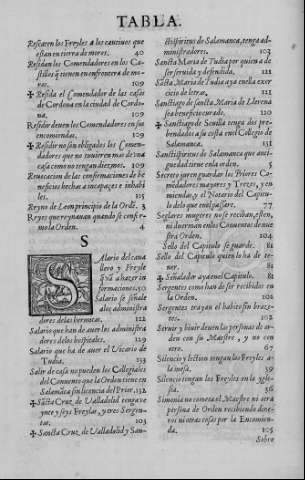 TABLA.
Rescaten los Freyles a los cautiuos que
estan en tierra de moros. 40
Residan los Comendadores en los Cas-
tillos q̃ tienen en enfrontera de mo-
ros. 109
✠ Resida el Comendador de las casas
de Cordoua en la ciudad de Cordo-
ua. 109
Residir deuen los Comendadores en sus
encomiendas. 109
✠ Residir no sin obligados los Comen-
dadores que no tuuieren mas de vna
casa como no tengan diezmos. 109
Reuocacion de las confirmaciones de be
neficios hechas a incapazes e inhabi
les. 135
Reyno de Leon principio de la Ordẽ. 3
Reyes que reynauan quando se confir-
mo la Orden. 4
S
SAlario del caua
llero y Freyle
q̃ va a hazer in
formaciones. 50
Salario se señale
a los administra
dores de las hermitas. 122
Salario que han de auer los administra
dores de los hospitales. 129
Salario que ha de auer el Vicario de
Tudia. 133
Salir de casa no pueden los Collegiales
del Conuento que la Orden tiene en
Salamãca sin licencia del Prior. 132
✠ Sãcta Cruz de Valladolid tenga ve
ynte y seys Freylas, y tres Sergen-
tas. 103
✠ Sancta Cruz de Valladolid y San-
ctispiritus de Salamanca, tenga ad-
ministradores. 103
Sancta Maria de Tudia por quien a de
ser seruida y defendida. 121
Sãcta Maria de Tudia aya en ella exer
cicio de letras. 121
Sanctiago de Sancta Maria de Llerena
sea beneficio curado. 120
✠ Sanctiago de Seuilla tenga dos pre-
bendados a su costa en el Collegio de
Salamanca. 131
Sanctispiritus de Salamanca que anti-
guedad tiene en la orden. 5
Secreto juren guardar los Priores Co-
mendadores mayores y Trezes, y en-
miendas, y el Notario del Capitu-
lo delo que en el passare. 77
Seglares mugeres no se reciban, esten,
ni duerman en los Conuentos de nue
stra Orden. 104
Sello del Capitulo se guarde. 81
Sello del Capitulo quien lo ha de te-
ner. 81
✠ Señalador aya en el Capitulo. 81
Sergentes como han de ser recibidos en
la Orden. 102
Sergentes trayan el habito sin braços.
102
Seruir y biuir deuen las personas de or
den con su Maestre, y no con
otro. 67
Silencio y lection tengan los Freyles a
la mesa. 39
Silencio tengan los Freyles en la ygle-
sia. 36
Simonia no cometa el Maestre ni otra
persona de Orden recibiendo dine-
ros ni otras cosas por la Encomien-
da. 105
Sobre